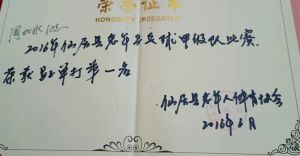 荣誉证书
HONORARY CREDENTIAL
2016年仙居县老年乒乓球甲级队比赛
荣获男子单打第一名
仙居县老年人体育协会
2016年6月